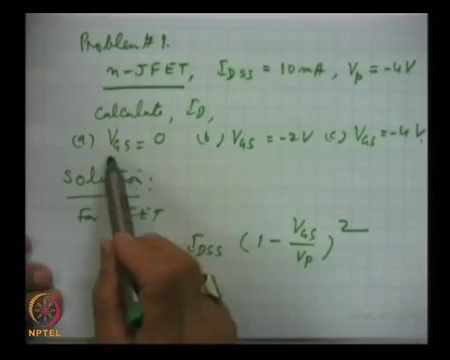 Problem # 1.
n-JFET, I_DSS = 10 mA, V_P = -4V
Calculate, I_D,
(a) V_GS = 0 (b) V_GS = -2V (c) V_GS = -4V.
Solution:
I_DSS (1 - V_GS/V_P)^2
NPTEL